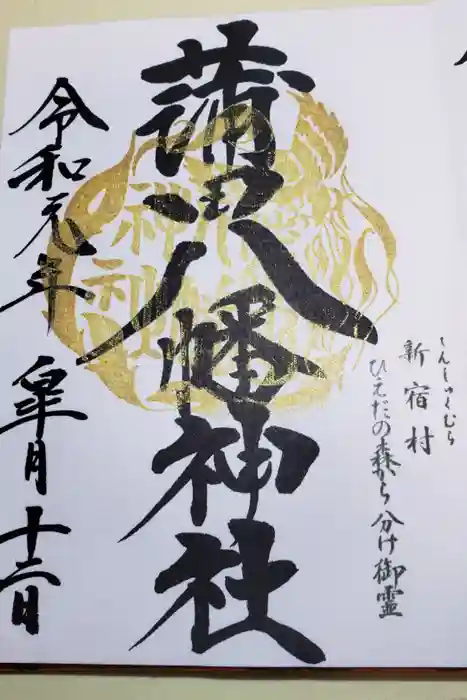 しんしゅくむら
新宿村
ひえだの森から分け御霊
蒲田八幡神社
神社
令和元年 皐月 十二日